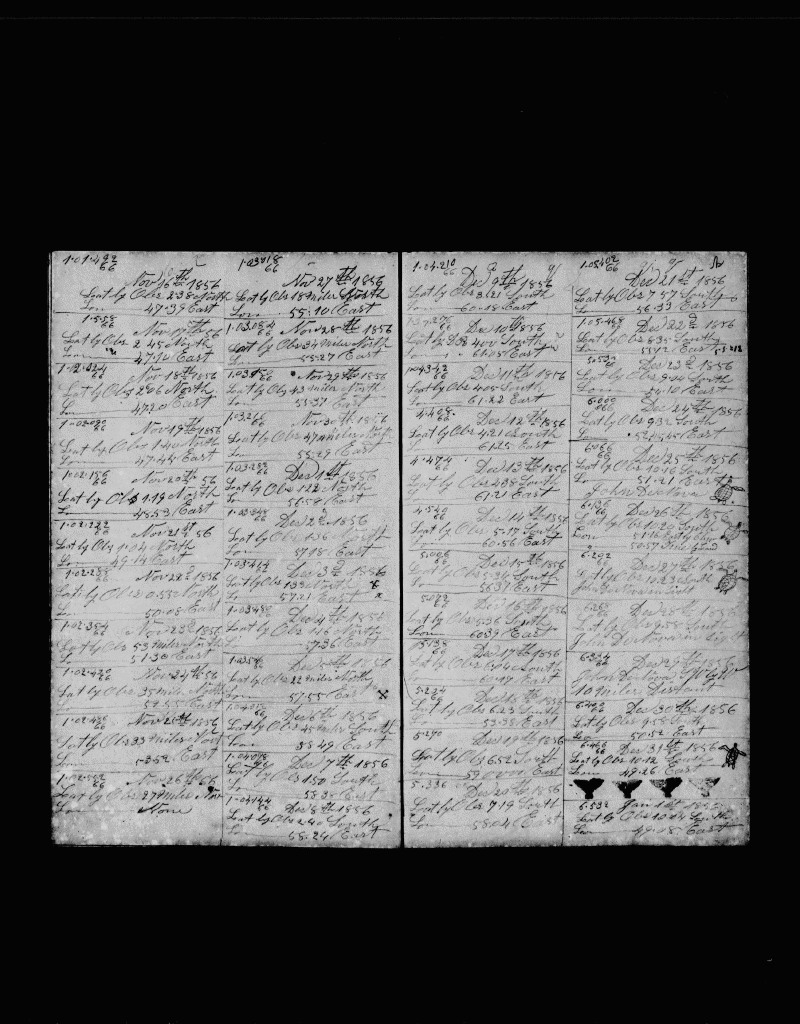 1.01.492
66
Nov 16th 1856
Lat by Obs 2.38 North
Lon 47.39 East
1.5.58
66
Nov 17th 56
Lat by Obs 2 45 North
Lon 47.10 East
66
Nov 18th 1856
Lat by Obs 2.06 North
Lon 47.20 East
1.02.090
66
Nov 19th 1856
Lat by Obs 1.40 North
Lon 47.44 East
1.02.156
66
Nov 20th 56
Lat by Obs 1.19 North
Lon 48.53 East
1.02.222
66
Nov 21st 56
Lat by Obs 1.04 North
Lon 49.14 East
1.02.288
66
Nov 22d 1856
Lat by Obs 0.55 North
Lon 50.08 East
1.02.354
66
Nov 23d 1856
Lat by Obs 53 miles North
Lon 51.30 East
1.02.420
66
Nov 24th 56
Lat by Obs 35 miles North
Lon East
1.02.486
66
Nov 25th 1856
Lat by Obs 33 miles North
Lon East
1.02.552
66
Nov 26th 56
Lat by Obs 27 miles Nor
Lon None
1.03.018
66
Nov 27th 1856
Lat by Obs 18 miles North
Lon 55.10 East
1.03.084
66
Nov 28th 1856
Lat by Obs 34 miles North
Lon 55.27 East
1.03.150
66
Nov 29th 1856
Lat by Obs 43 miles North
Lon 55.37 East
1.03.216
66
Nov 30th 1856
Lat by Obs 47 miles North
Lon 55.29 East
1.03.282
66
Dec 1st 1856
Lat by Obs 1.22 North
Lon 56.58 East
1.03.348
66
Dec 2d 1856
Lat by Obs 1.36 North
Lon 57.18 East
1.03.414
66
Dec 3d 1856
Lat by Obs 1.39 North
Lon 57.21 East
1.03.480
66
Dec 4th 1856
Lat by Obs 1.16 North
Lon 57.36 East
66
Dec 5th 1856
Lat by Obs 22 miles North
Lon 57.55 East
Dec 6th 1856
Lat by Obs 45 miles South
Lon 58.49 East
1.04.078
66
Dec 7th 1856
Lat by Obs 1.50 South
Lon 58.38 East
1.04.144
66
Dec 8th 1856
Lat by Obs 2.40 South
Lon 58.24 East
1.04.210
66
Dec 9th 1856
Lat by Obs 3.21 South
Lon 60.18 East
66
Dec 10th 1856
Lat by Obs 4.00 South
Lon 61.05 East
1.04.342
66
Dec 11th 1856
Lat by Obs 4.05 South
Lon 61.22 East
4.408
66
Dec 12th 1856
Lat by Obs 4.21 South
Lon 61.25 East
4.474
66
Dec 13th 1856
Lat by Obs 4.38 South
Lon 61.21 East
4.540
66
Dec 14th 1856
Lat by Obs 5.17 South
Lon 60.56 East
5.006
66
Dec 15th 1856
Lat by Obs 5.34 South
Lon East
5.072
66
Dec 16th 1856
Lat by Obs 5.36 South
Lon 60.39 East
5.138
66
Dec 17th 1856
Lat by Obs 6.04 South
Lon 60.17 East
5.224
Dec 18th 1856
Lat by Obs 6.23 South
Lon 53.38 East
5.290
Dec 19th 1856
Lat by Obs 6.52 South
Lon 59.00 East
5.336
Dec 20th 1856
Lat by Obs 7.19 South
Lon 58.04 East
1.05.402
66
Dec 21st 1856
Lat by Obs 7.57 South
Lon 56.33 East
1.05.468
66
Dec 22d 1856
Lat by Obs 8.35 South
Lon 55.12 East
5.534
66
Dec 23d 1856
Lat by Obs 9.04 South
Lon 54.10 East
6.000
066
Dec 24th 1856
Lat by Obs 9.32 South
Lon 52.45 East
6.066
66
Dec 25th 1856
Lat by Obs 10.16 South
Lon 51.21 East
John Denova
66
Dec 26th 1856
Lat by Obs 10.20 South
Lon
6.292
Dec 27th 1856
Lat by Obs 10.23 South
66
Dec 28th 1856
Lat by Obs 9.58 South
6.334
66
Dec 29th 1856
10 Miles Distant
66
Dec 30th 1856
Lat by Obs 9.58 South
Lon 50.52 East
6.466
66
Dec 31st 1856
Lat by Obs 10.12 South
Lon 49.26 East
6.532
66
Jan 1st
Lat by Obs 10.04 South
Lon 49.08 East